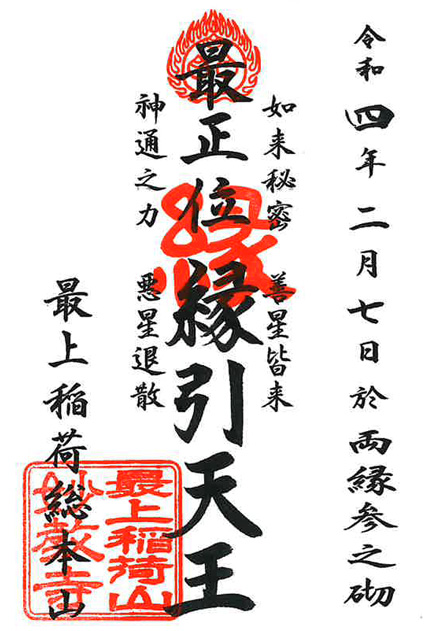 令和四年二月七日於両縁参之砌
如来秘密 善星皆来
最正位縁引天王
神通之力 悪星退散
最上稲荷総本山
最上稲荷山
妙教寺
縁